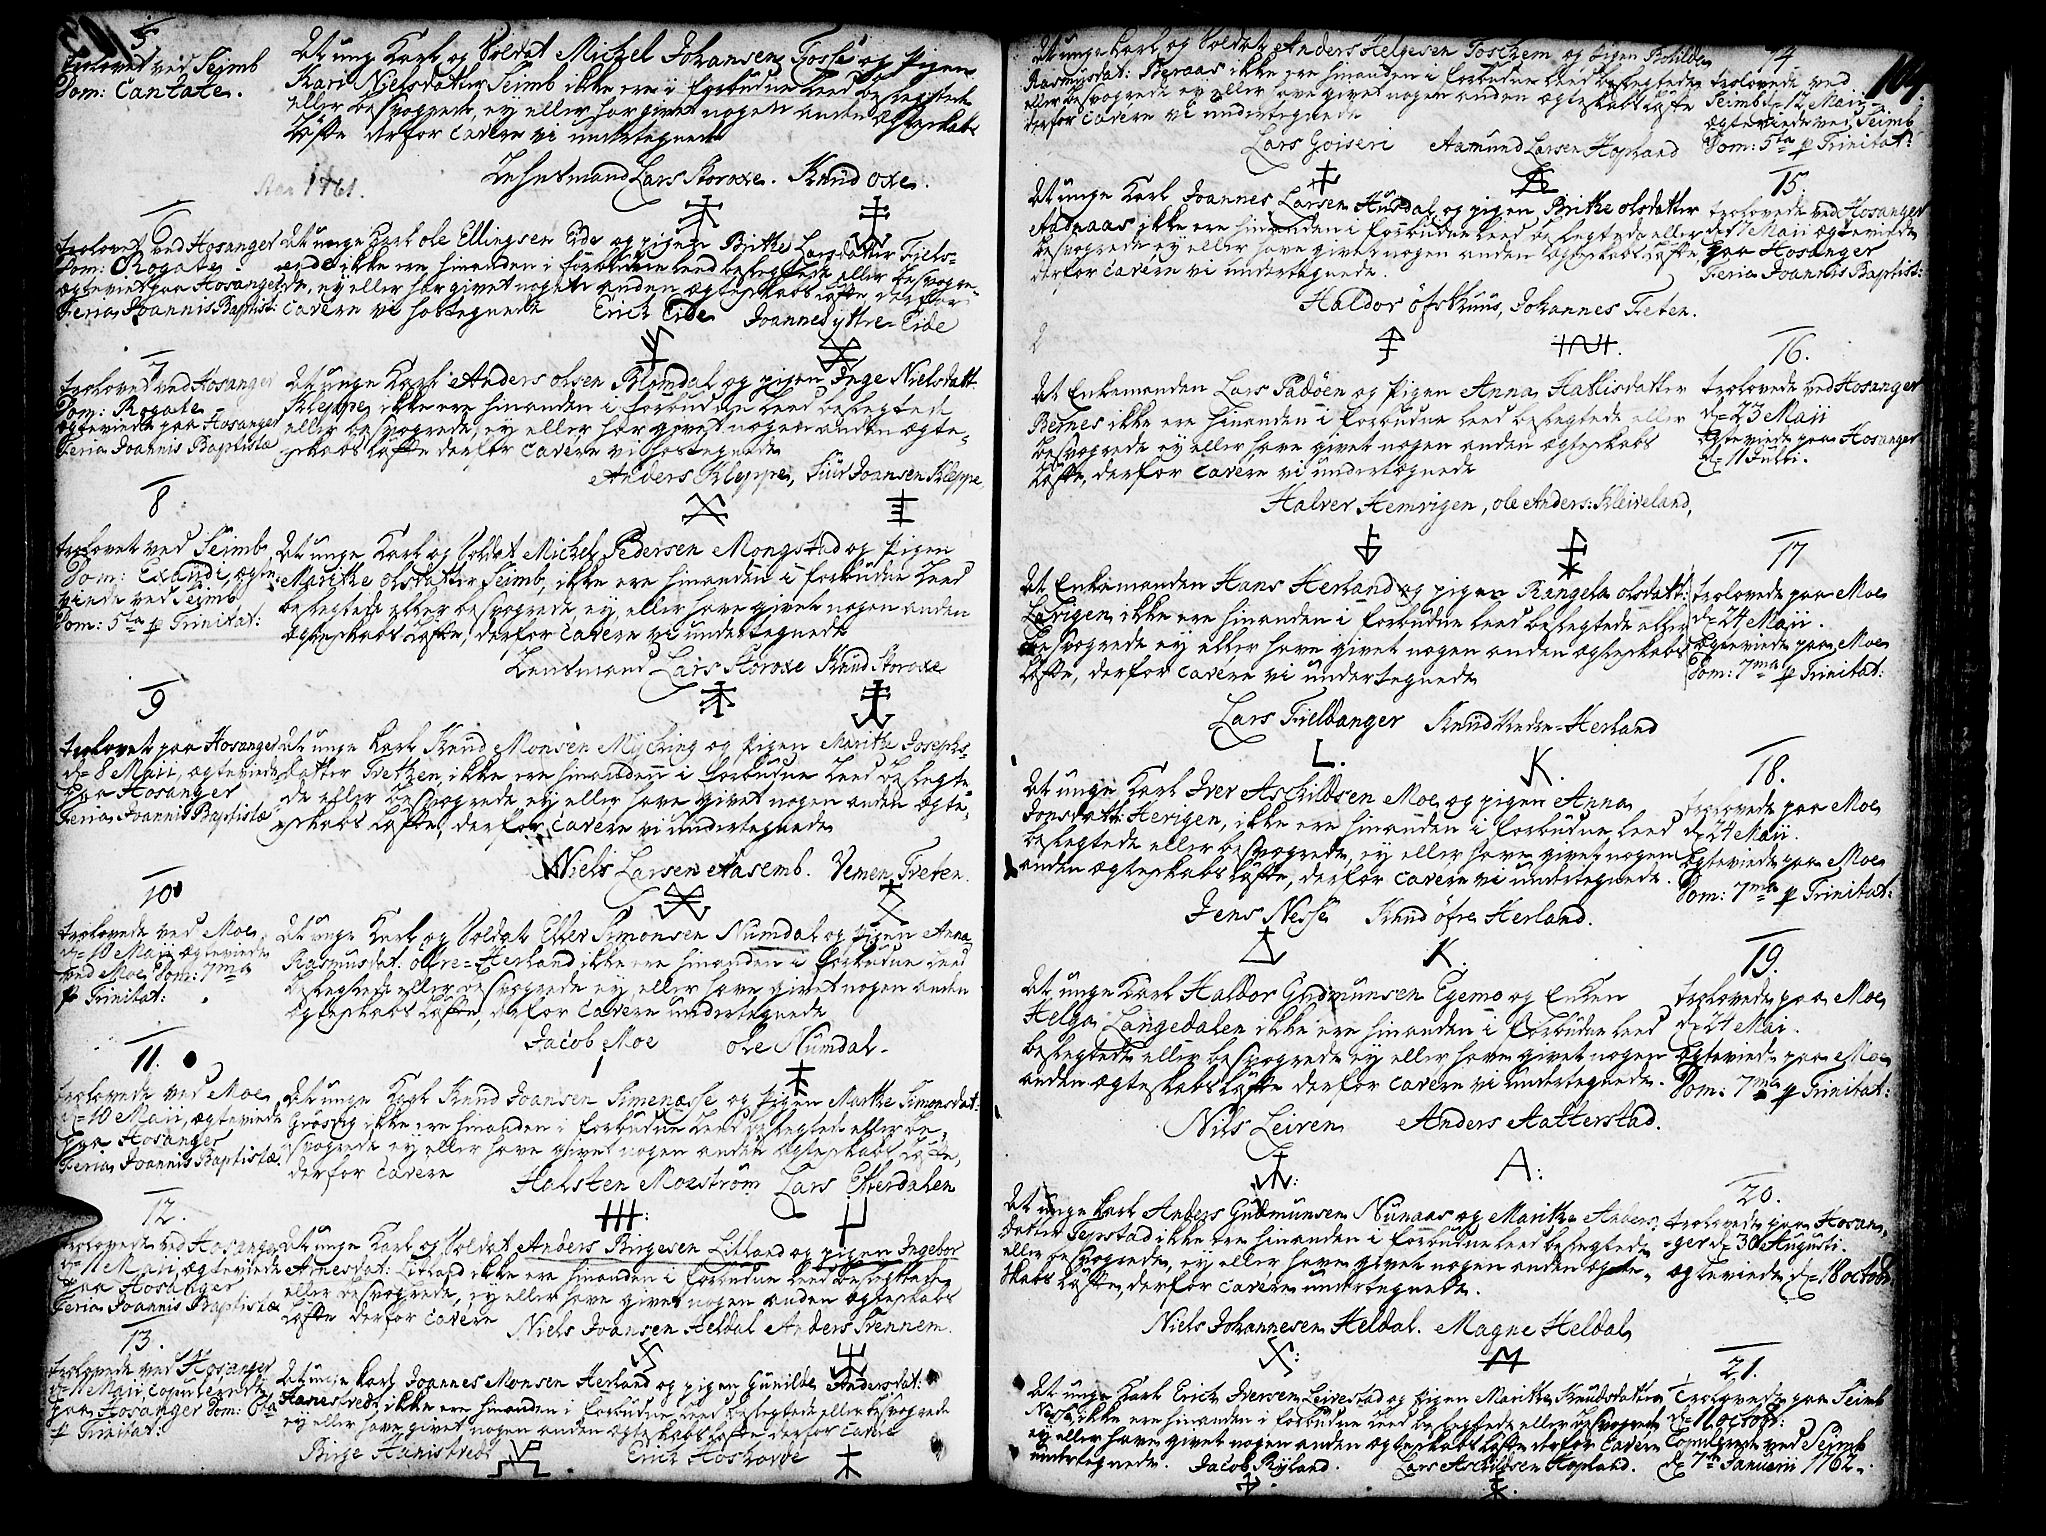 5
Trolovet ved Seimb
Dom: Cantate.
Det unge Karl og Soldat Michel Johansen Fosse og Pigen
Kari Nielsdatter Seimb ikke ere i forbudne Leed beslegtede
eller besvogrede, ey eller har givet nogen anden Ægteskabs
Løfte derfor Cavere vi undertegnede
Lehnsmand Lars Storoxe. Knud Oxe.
Ann 1761.
6
Trolovet ved Hosanger
Dom: Rogate
Ægteviet paa Hosanger
Feria Joannis Baptist:
Det unge Karl Ole Ellingsen Eide og pigen Britke Larsdatter Fiels-
ende ikke ere hinanden i forbudne Leed beslegtede eller besvogre-
de, ey eller har givet nogen anden Ægteskabs Løfte derfor
Cavere vi hostegnede Erick Eide Joannes yttre Eide
7
Trolovet ved Hosanger
Dom: Rogate
Ægteviede paa Hosanger
Feria Joannis Baptista
Det unge Karl Anders Olsen Blomdal og pigen Inge Nielsdatt:
Kleppe ikke ere hinanden i forbudne Leed beslegtede
eller besvogrede, ey eller har givet nogen anden Ægte-
skabs Løfte derfor Cavere vi hostegnede
Anders Kleppe, Siur Joansen Kleppe,
8
Trolovet ved Seimb
Dom: Exaudi, Ægte-
viede ved Seimb
Dom: 5ta p Trinitat:
Det unge Karl og Soldat Michel Pedersen Mongstad og Pigen
Maritke Olsdatter Seimb, ikke ere hinanden i forbudne Leed
beslegtede eller besvogrede, ey eller have givet nogen anden
Ægteskabs Løfte, derfor Cavere vi undertegnede
Lensmand Lars Storoxe Knud Storoxe
9
Trolovet paa Hosanger
d. 8 Maii, Ægteviede
paa Hosanger
Feria Joannis Baptistæ
Det unge Karl Knud Monsen Mycking og Pigen Maritke Josephs-
datter Tretten, ikke ere hinanden i forbudne Leed beslegte-
de eller besvogrede, ey eller have givet nogen anden Ægte-
skabs Løfte, derfor Cavere vi undertegnede
Niels Larsen Aasemb. Vemen Treten.
10
Trolovede ved Moe
d. 10 Maii Ægteviede
ved Moe Dom: 7ma
p Trinitat:
Det unge Karl og Soldat Eller Simonsen Numdal og Pigen Anna
Rasmusdat: Øfre-Herland ikke ere hinanden i forbudne Leed
beslegtede eller besvogrede ey eller have givet nogen anden
Ægteskabs Løfte, derfor Cavere undertegnede
Jacob Moe Ole Numdal.
11.
Trolovede ved Moe
d. 10 Maii, Ægteviede
paa Hosanger
Feria Joannis Baptistæ.
Det unge Karl Knud Joansen Simenæsse og Pigen Maritke Simonsdat:
ikke ere hinanden i forbudne Leed beslegtede eller be-
svogrede ey eller have givet nogen anden Ægteskabs Løfte,
derfor Cavere Halsten Moxstrom Lars Efterdalen
12.
Trolovede ved Hosanger
d. 11 Maii, Ægteviede
paa Hosanger
Feria Joannis Baptistæ
Det unge Karl og Soldat Anders Birgesen Litland og pigen Ingebor
Arnesdat: Litland ikke ere hinanden i forbudne Leed beslegtede
eller besvogrede, ey eller have givet nogen anden Ægteskabs
Løfte derfor Cavere Niels Joansen Heldal Anders Trennem.
13.
Trolovede ved Hosanger
d. 11 Maii Copulerede
paa Hosanger Dom: 6ta
p Trinitat:
Det unge Karl Joannes Monsen Herland og pigen Gunilde Andersdat:
Hanistvedt ikke ere hinanden i forbudne Leed beslegtede eller besvogrede
ey eller have givet nogen anden Ægteskabs Løfte derfor Cavere
Birge Hanistvedt Erick Hoshovde
104
14
Trolovede ved
Seimb d. 12 Maii
Ægteviede ved Seimb
Dom: 5ta p Trinitat:
Det unge Karl og Soldat Anders Helgesen Toskem og pigen Bothilde
Rasmusdat: Beraas ikke ere hinanden i forbudne Leed beslegtede
eller besvogrede ey eller have givet nogen anden Ægteskabs Løfte
derfor Cavere vi undertegnede
Lars Goiseri Aamund Larsen Hopland
15.
Trolovede ved Hosanger
d. Maii Ægteviede
paa Hosanger
Feria Joannis Baptist:
Det unge Karl Joannes Larsen Husdal og pigen Britke Olsdatter
Aadnaas ikke ere hinanden i forbudne Leed beslegtede eller
besvogrede ey eller have givet nogen anden Ægteskabs Løfte,
derfor Cavere vi undertegnede.
Haldor Øfskuus, Johannes Treten.
16.
Trolovede ved Hosanger
d. 23 Maii
Ægteviede paa Hosanger
d. 11 Julii.
Det Enkemanden Lars Padøen og Pigen Anna Hallisdatter
Bernes ikke ere hinanden i forbudne Leed beslegtede eller
besvogrede ey eller have givet nogen anden Ægteskabs
Løfte, derfor Cavere vi undertegnede
Halver Hemvigen, Ole Anders: Kleiveland,
17
Trolovede paa Moe
d. 24 Maii.
Ægteviede paa Moe
Dom: 7ma p Trinitat:
Det Enkemanden Hans Herland og pigen Rangela Olsdatt:
Løvigen ikke ere hinanden i forbudne Leed beslegtede eller
besvogrede ey eller have givet nogen anden Ægteskabs
Løfte, derfor Cavere vi undertegnede
Lars Fieldanger Knud Nedre-Herland
L. K.
18.
Trolovede paa Moe
d. 24 Maii.
Ægteviede paa Moe
Dom: 7ma p Trinitat:
Det unge Karl Iver Askildsen Moe og pigen Anna
Jonsdatt: Herigen, ikke ere hinanden i forbudne Leed
beslegtede eller besvogrede, ey eller have givet nogen
anden Ægteskabs Løfte, derfor Cavere vi undertegnede.
Jens Nesse Knud Øfre Herland.
K.
19.
Trolovede paa Moe
d. 24 Mai.
Ægteviede paa Moe
Dom: 7ma p Trinitat:
Det unge Karl Haldor Gudmunsen Egemo og Enken
Helga Langedalen ikke ere hinanden i forbudne Leed
beslegtede eller besvogrede ey eller have givet nogen
anden Ægteskabs Løfte derfor Cavere vi undertegnede.
Nils Leiren Anders Aatterstad.
A:
20.
Trolovede paa Hosan-
ger d. 30 Augusti.
Ægteviede d. 18 octobr.
Det unge Karl Anders Gudmunsen Nunaas og Maritke Anders-
datter Tepstad ikke ere hinanden i forbudne Leed beslegtede
eller besvogrede, ey eller have givet nogen anden Ægte-
skabs Løfte, derfor Cavere undertegnede.
Niels Johannesen Heldal. Magne Heldal
21.
Trolovede paa Seimb
d. 11 octobr:
Copulerede ved Seimb
d. 7de Januarii 1762.
Det unge Karl Erick Iversen Leirestad og Pigen Maritke Knudsdatter
Nesse, ikke ere hinanden i forbudne Leed beslegtede eller besvogrede
ey eller have givet nogen anden Ægteskabs Løfte derfor Cavere
undertegnede. Jacob Ryland. Lars Askildsen Hopland.